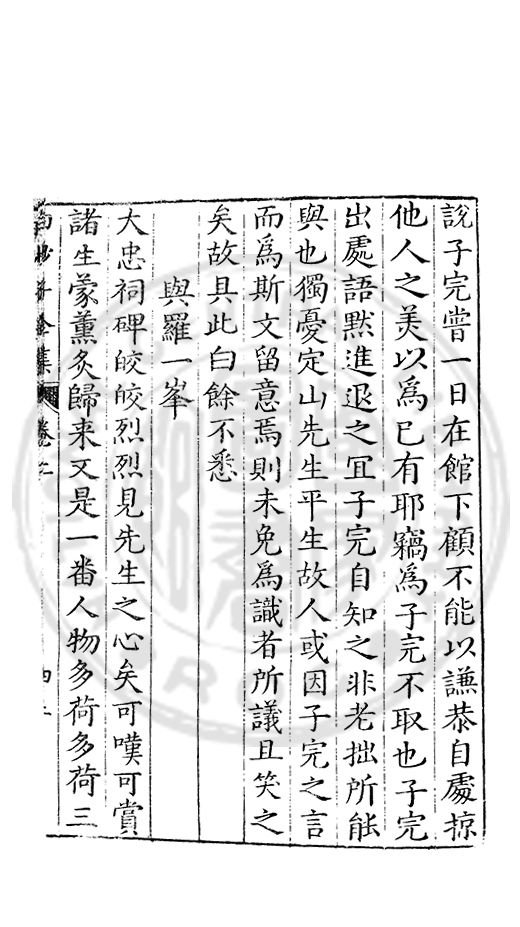 說子完嘗一日在館下顧不能以謙恭自處掠
他人之美以爲已有耶竊爲子完不取也子完
出處語默進退之冝子完自知之非老拙所能
與也獨憂定山先生平生故人或因子完之言
而爲斯文留意焉則未免爲識者所議且笑之
矣故具此白餘不悉
與羅一峯
大忠祠碑皎皎烈烈見先生之心矣可嘆可賞
諸生蒙薰炙歸来又是一畨人物多荷多荷三
白沙子全集 卷二